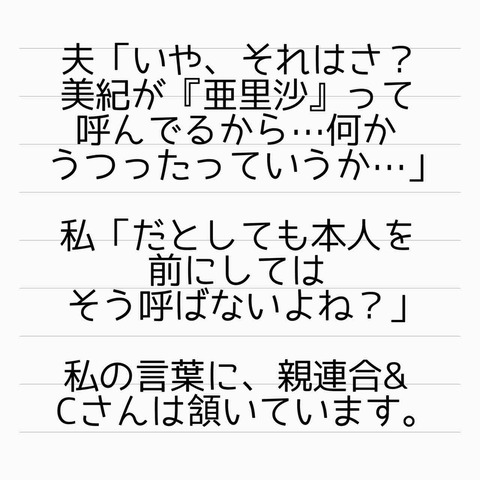 夫「いや、それはさ？
美紀が『亜里沙』って
呼んでるから…何か
うつったっていうか…」
私「だとしても本人を
前にしては
そう呼ばないよね？」
私の言葉に、親連合&
Cさんは頷いています。